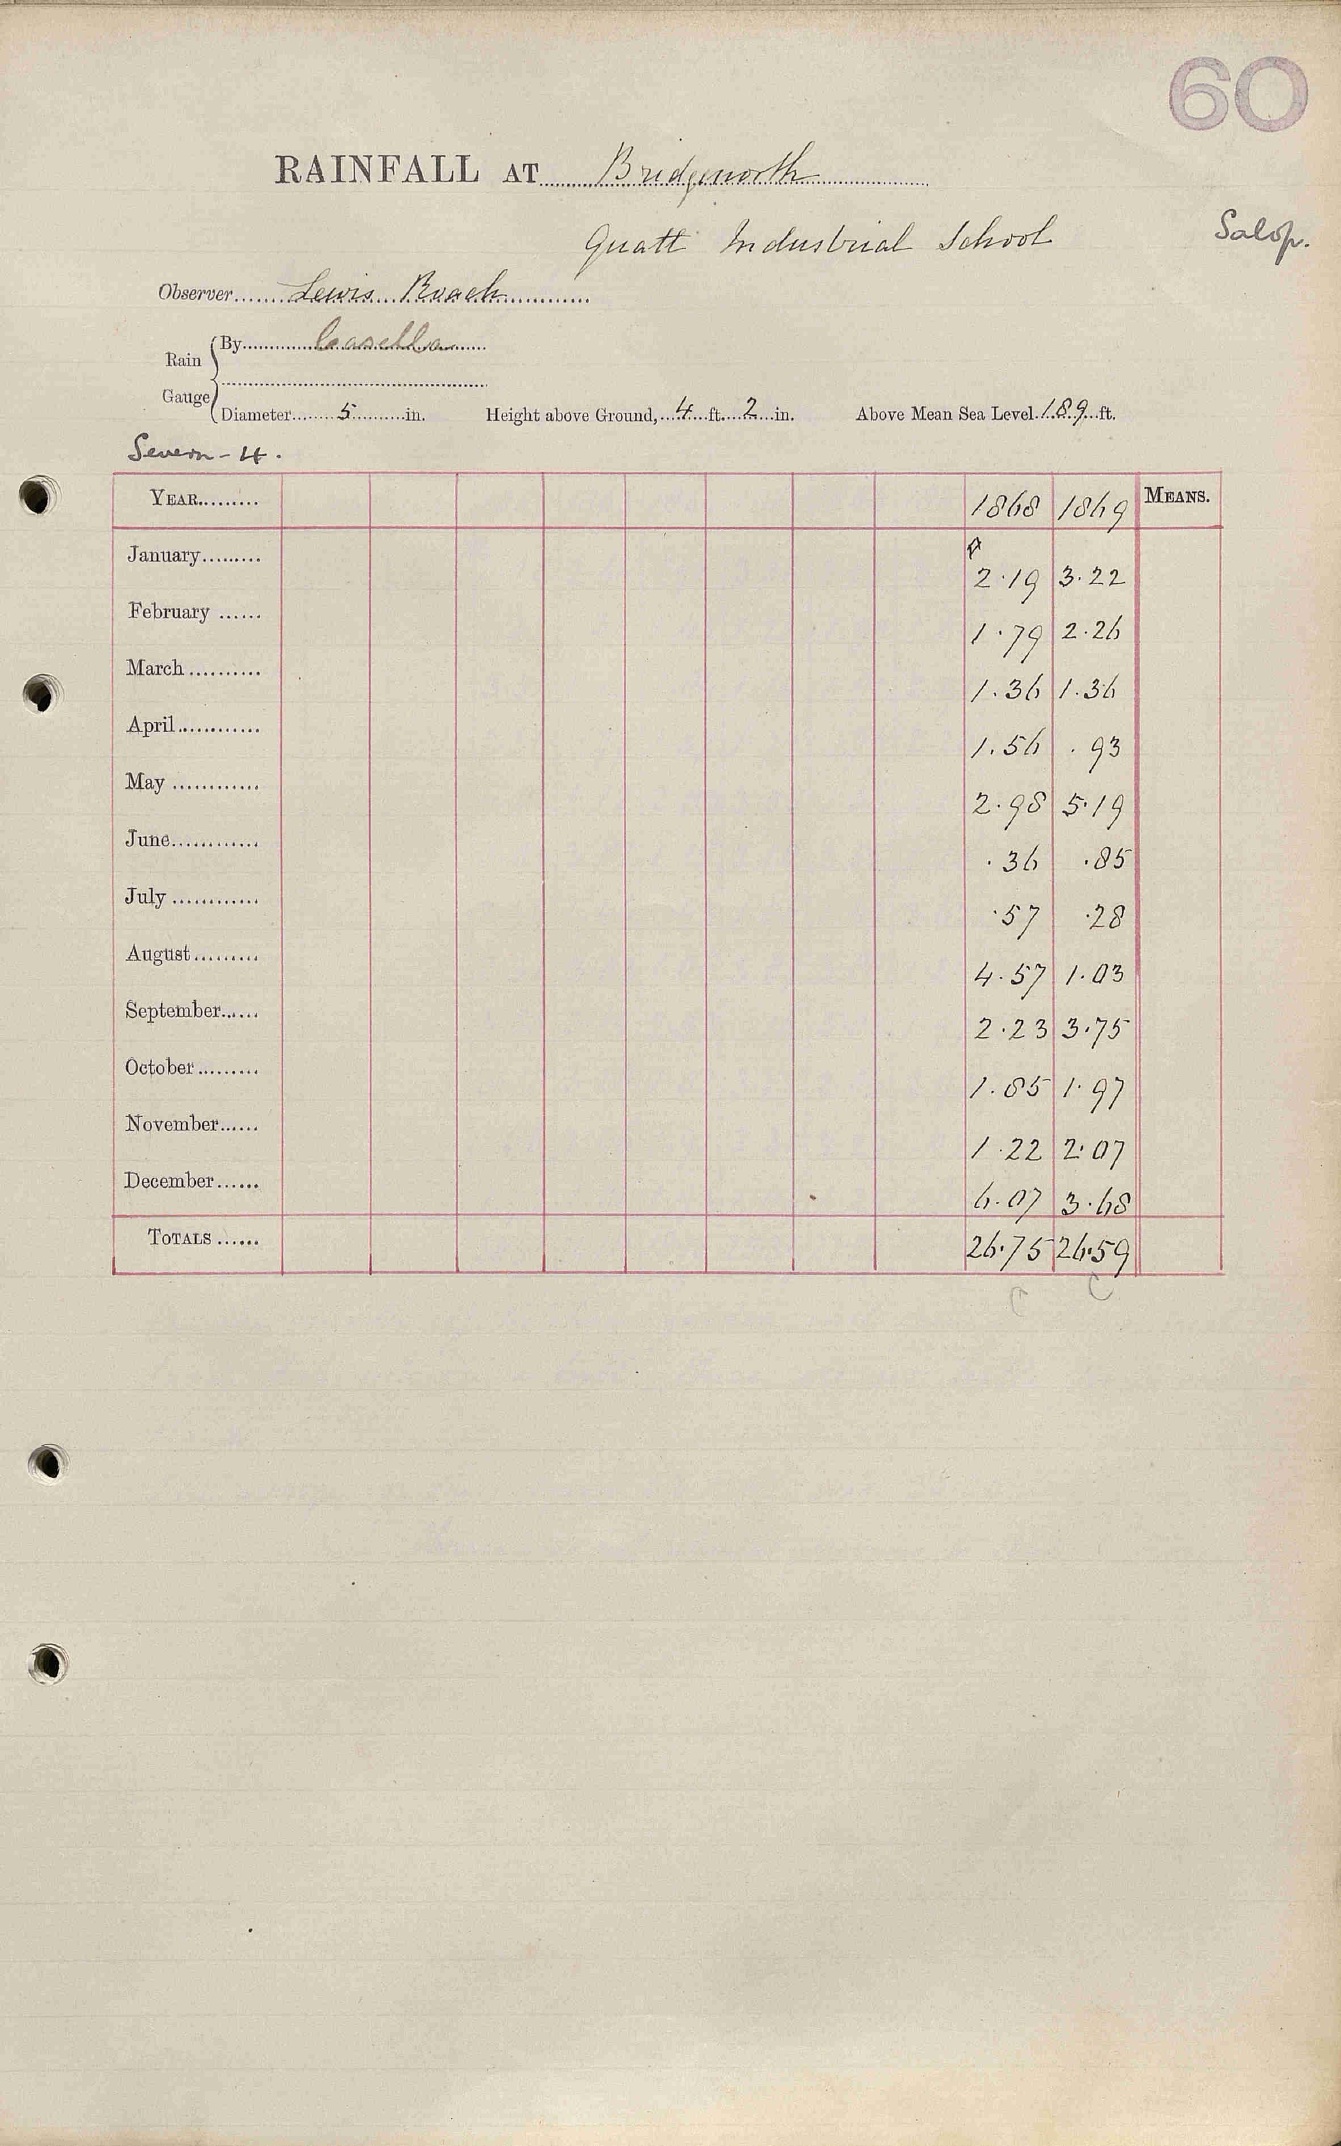 60
RAINFALL AT Bridgenorth
Quatt Industrial School Salop.
Observer Lewis Roach
Rain Gauge
By Casella
Diameter 5 in. Height above Ground, 4 ft. 2 in. Above Mean Sea Level 189 ft.
Severn - 4.
YEAR 1868 1869 MEANS.
January 2.19 3.22
February 1.79 2.26
March 1.36 1.36
April 1.56 .93
May 2.98 5.19
June .36 .85
July .57 .28
August 4.57 1.03
September 2.23 3.75
October 1.85 1.97
November 1.22 2.07
December 6.07 3.68
TOTALS 26.75 26.59